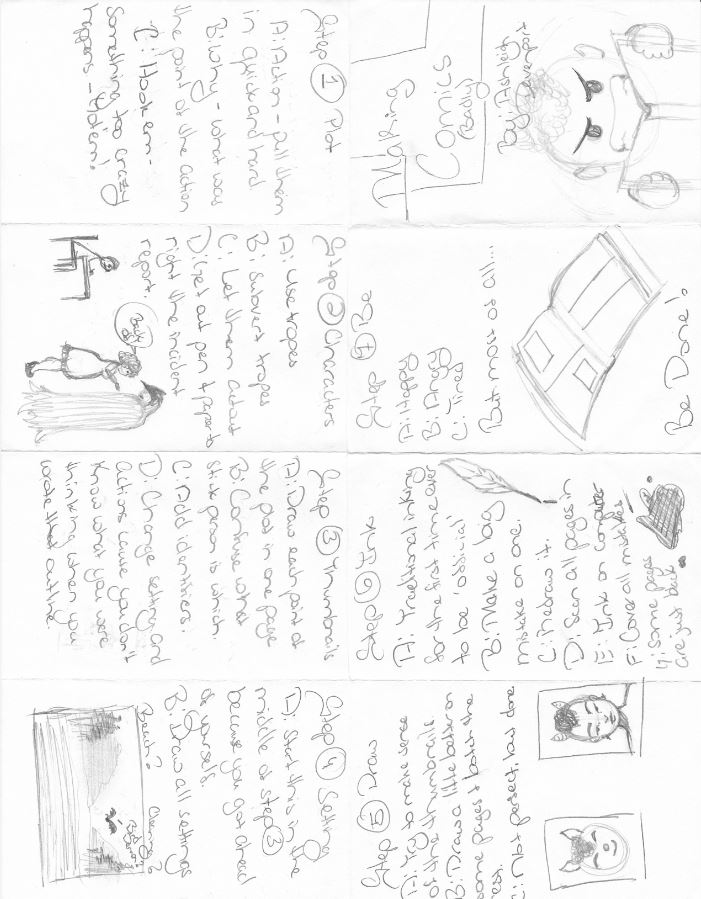 Making
Comics
(Badly)
By: Ashleigh
Davenport
Step 1 Plot
A: Action - pull them
in quick and hard
B: Why - what was
the point of the action
C: Hook em -
Something too crazy
happens - ya'done!
Step 2 Characters
A: Use tropes
B: Subvert tropes
C: Let them act out
D: Get out pen & paper to
right the incident
report.
Step 3 Thumbnails
A: Draw each point of
the plot in one page
B: Confuse what
stick person is which.
C: Add identifiers.
D: Change setting and
actions cause you don't
know what you were
thinking when you
wrote that outline.
Step 4 Setting
A: Start this in the
middle of step 3
because you got ahead
of yourself.
B: Draw all settings
Beach?
Step 5 Draw
A: Try to make sense
of the thumbnails
B: Draw a little better on
some pages & botch the
rest.
C: Not perfect, but done
Step 6 Ink
A: Traditional inking
for the first time ever
to be 'official'
B: Make a big
mistake on one.
C: Redraw it.
D: Scan all pages in
E: Ink on computer
F: Cover all mistakes
G: some pages
are just back
Step 7 Be
A: Happy
B: Angry
C: Tired
But most of all...
Be Done!